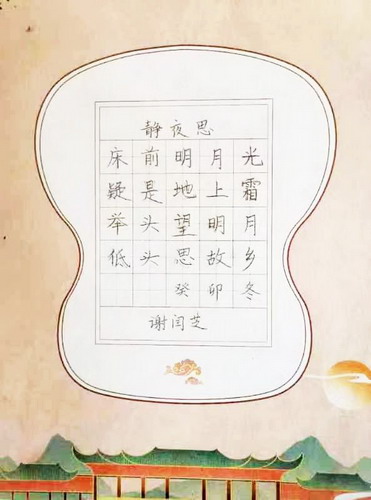 静夜思
床前明月光
疑是地上霜
举头望明月
低头思故乡
癸卯冬
谢闰芝